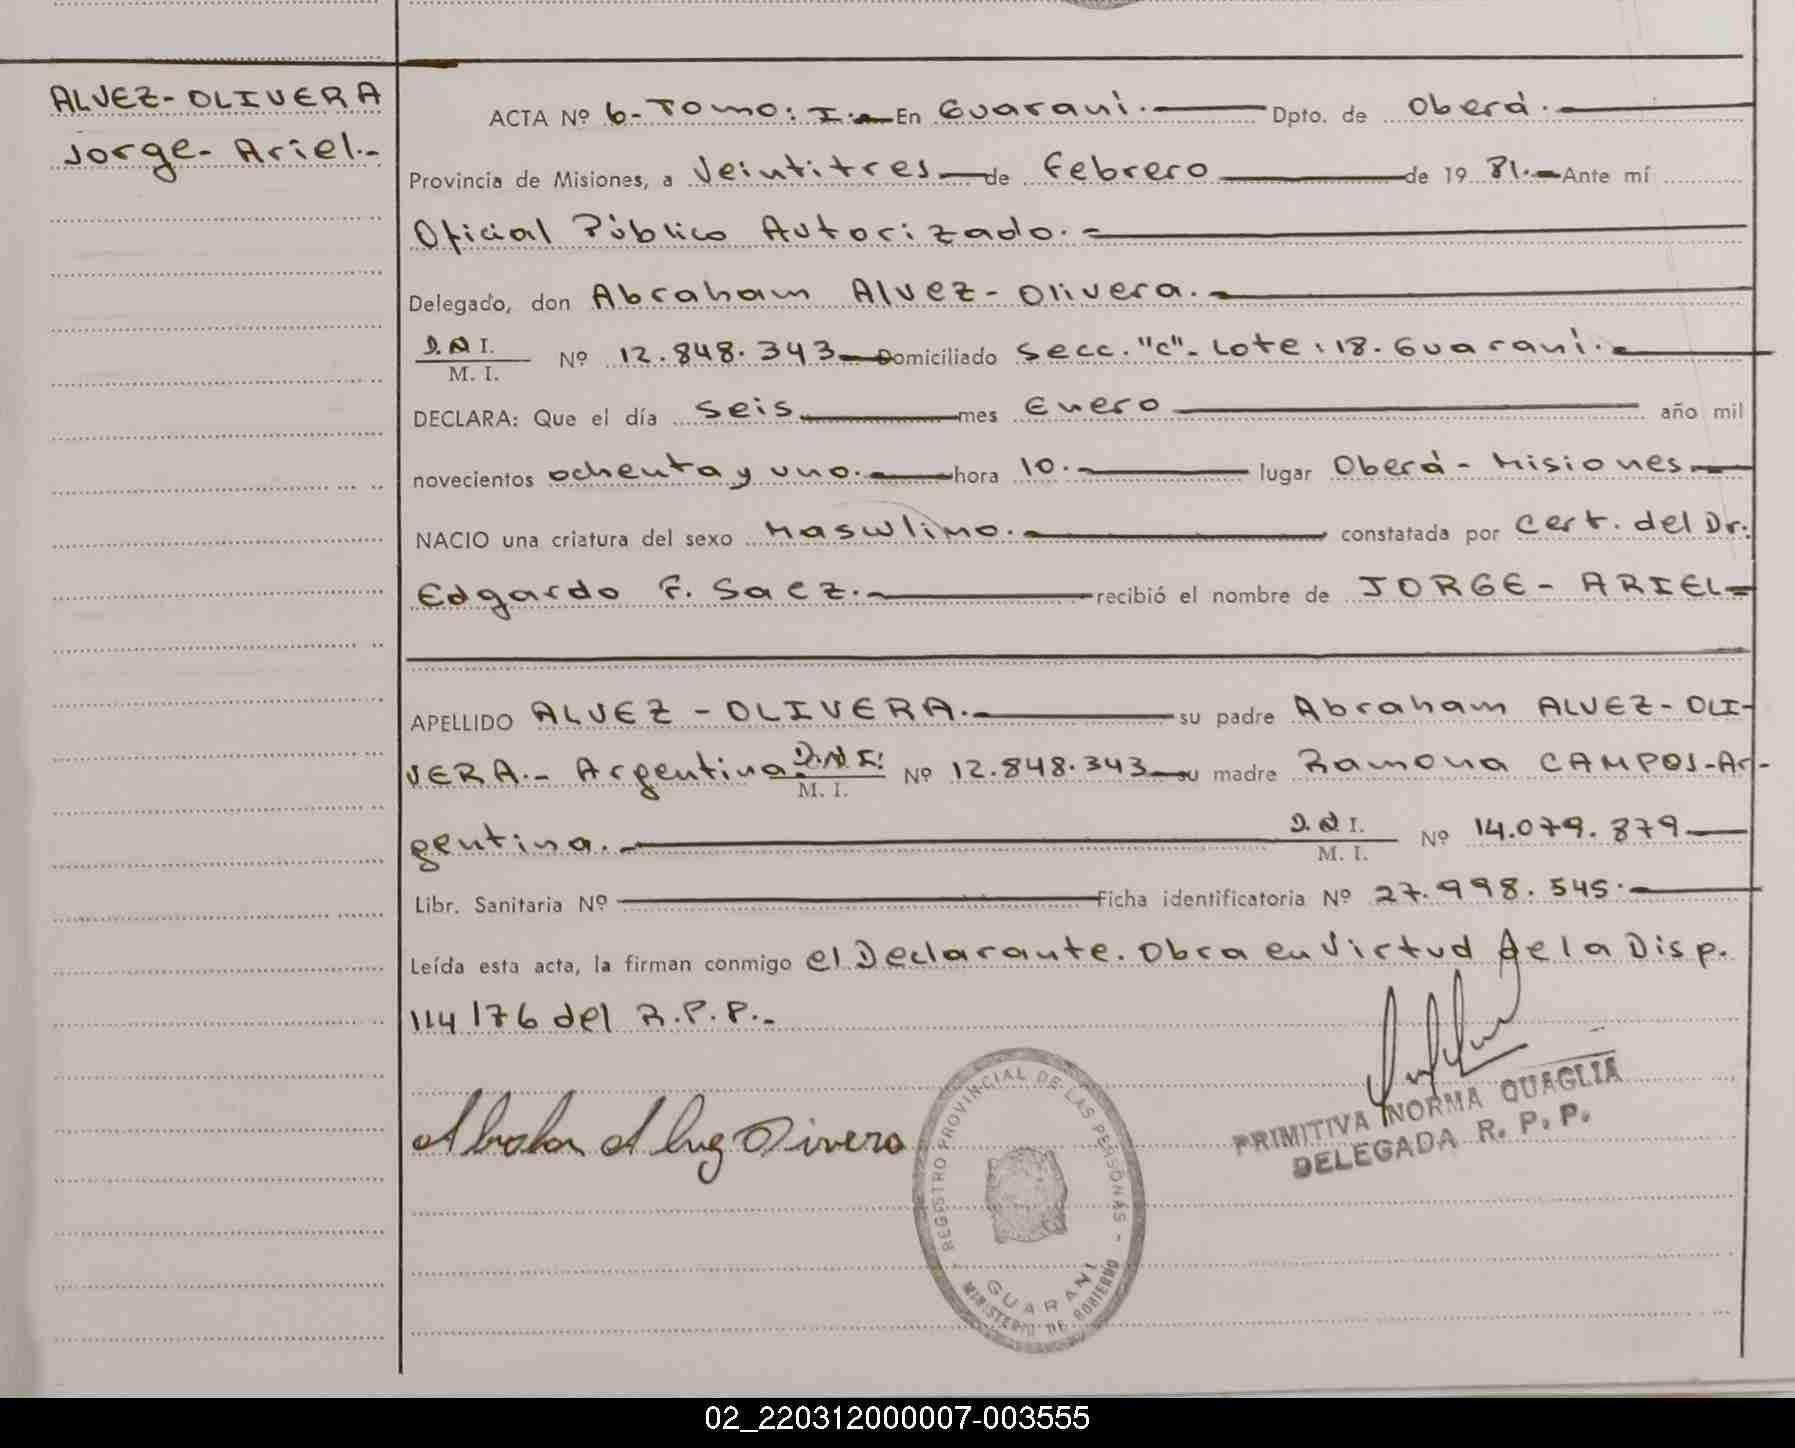 ALVEZ-OLIVERA
Jorge- Ariel.-
ACTA Nº 6- Tomo: I.- En Guaraní. Dpto. de Oberá.
Provincia de Misiones, a Veintitres de Febrero de 19 81.- Ante mí
Oficial Público Autorizado.-
Delegado, don Abraham Alvez-Olivera.-
D.N.I. Nº 12.848.343 Domiciliado Secc. "C"- Lote: 18- Guaraní.-
M. I.
DECLARA: Que el día Seis mes Enero año mil
novecientos ochenta y uno.- hora 10.- lugar Oberá- Misiones
NACIO una criatura del sexo Masculino.- constatada por Cert. del Dr.
Edgardo F. Saez.- recibió el nombre de JORGE- ARIEL-
APELLIDO ALVEZ-OLIVERA.- su padre Abraham ALVEZ-OLI-
VERA.- Argentina. D.N.I. Nº 12.848.343 su madre Ramona CAMPOS-Ar-
M. I.
gentina.- D.N.I. Nº 14.079.879
M. I.
Libr. Sanitaria Nº Ficha identificatoria Nº 27.998.545.-
Leída esta acta, la firman conmigo el Declarante. Obra en Virtud de la Disp.
114/76 del R.P.P.-
Abraham Alvez Olivera
REGISTRO PROVINCIAL DE LAS PERSONAS
GUARANI
MINISTERIO DE GOBIERNO
PRIMITIVA NORMA QUAGLIA
DELEGADA R. P. P.
02_220312000007-003555